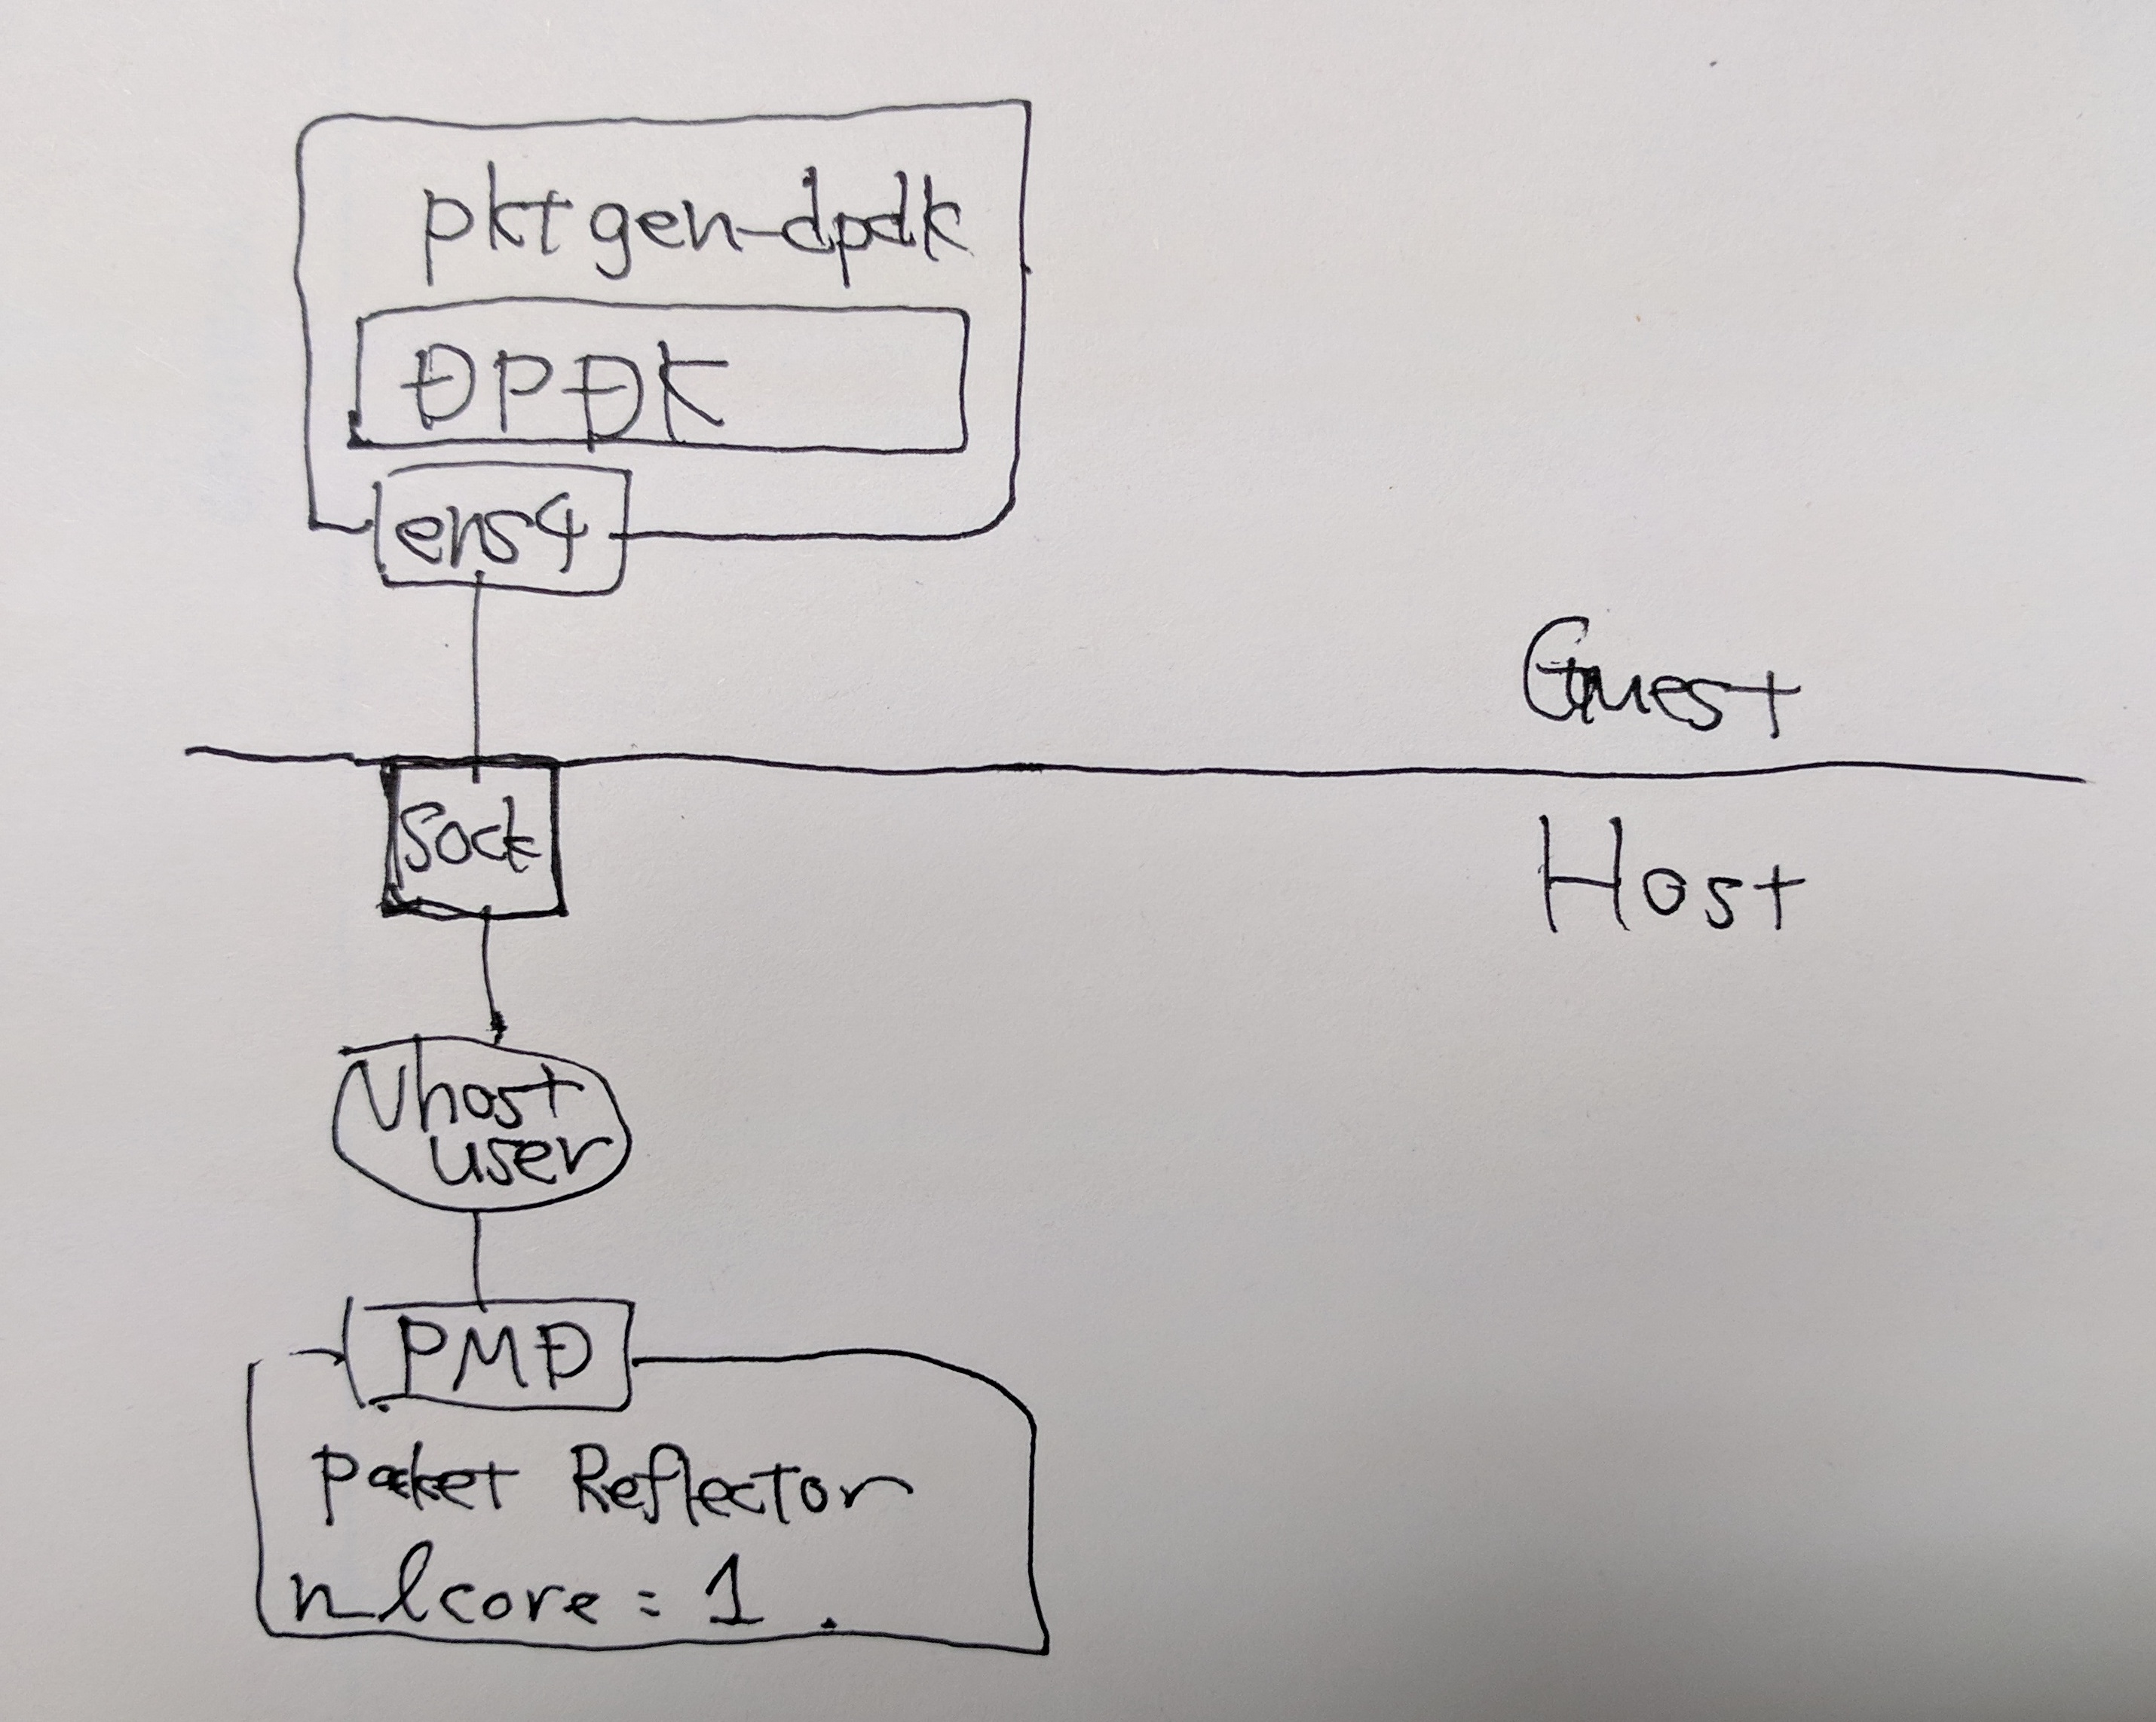 pktgen-dpdk
DPDK
ens4
Guest
Sock
Host
Vhost
user
PMD
Packet Reflector
n_lcore = 1.